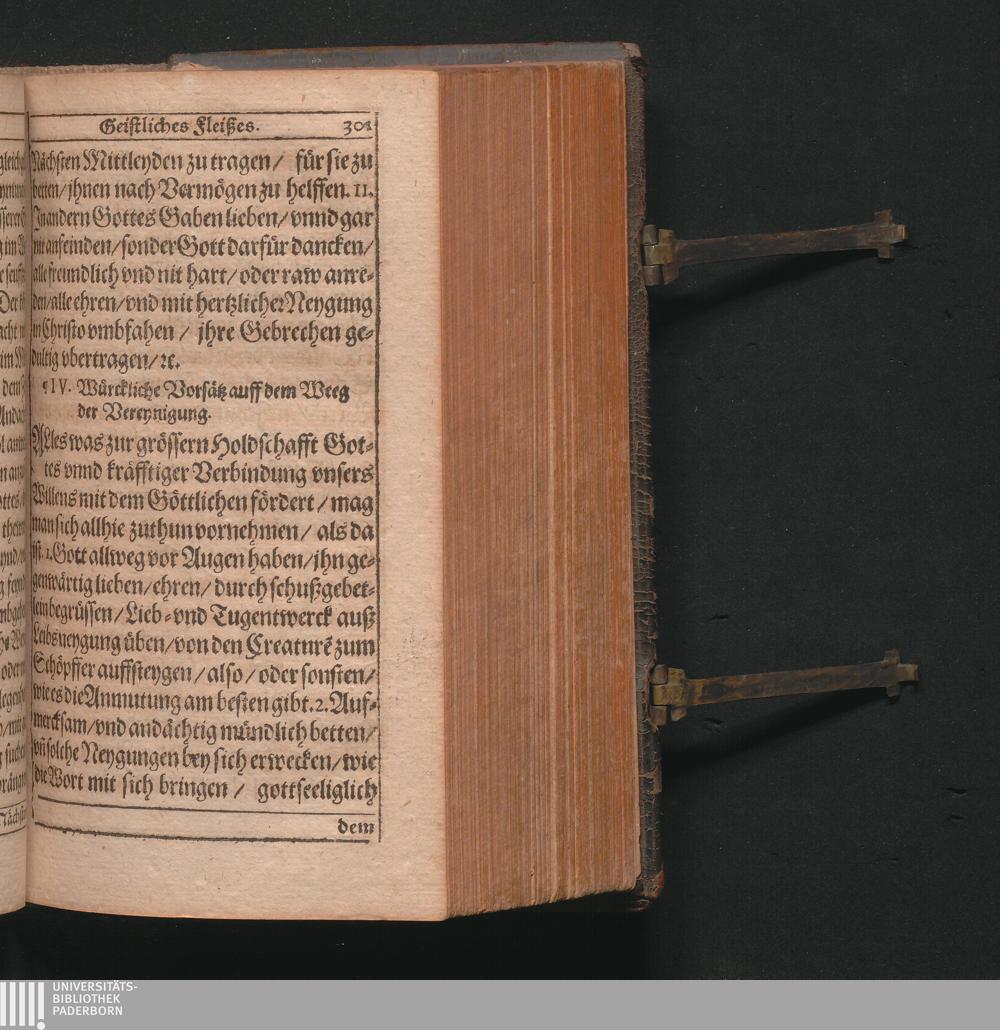 Geistliches Fleißes. 301
Nächsten Mittleyden zu tragen / für sie zu
betten / jhnen nach Vermögen zu helffen. 11.
In andern Gottes Gaben lieben / vnnd gar
nit anfeinden / sonder Gott darfür dancken /
alle freundlich vnd nit hart / oder raw anre-
den / alle ehren / vnd mit hertzlicher Neygung
in Christo vmbfahen / jhre Gebrechen ge-
dultig vbertragen / ꝛc.
¶ IV. Würckliche Vorsätz auff dem Weeg
der Vereynigung.
ALles was zur grössern Holdschafft Got-
tes vnnd kräfftiger Verbindung vnsers
Willens mit dem Göttlichen fördert / mag
man sich allhie zuthun vornehmen / als da
ist. 1. Gott allweg vor Augen haben / jhn ge-
genwärtig lieben / ehren / durch schußgebet-
lein begrüssen / Lieb- vnd Tugentwerck auß
Leibsneygung üben / von den Creaturẽ zum
Schöpffer auffsteygen / also / oder sonsten /
wie es die Anmutung am besten gibt. 2. Auf-
mercksam / vnd andächtig mündlich betten /
vñ solche Neygungen bey sich erwecken / wie
die Wort mit sich bringen / gottseeliglich
dem
UNIVERSITÄTS-
BIBLIOTHEK
PADERBORN